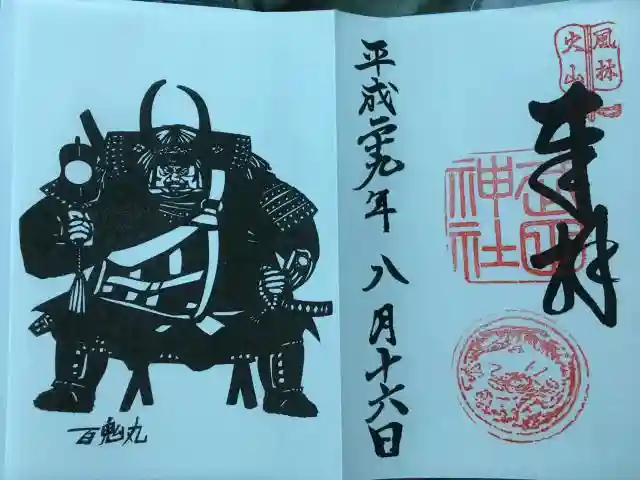 風林
火山
奉拝
武田
神社
平成二十九年 八月十六日
百鬼丸